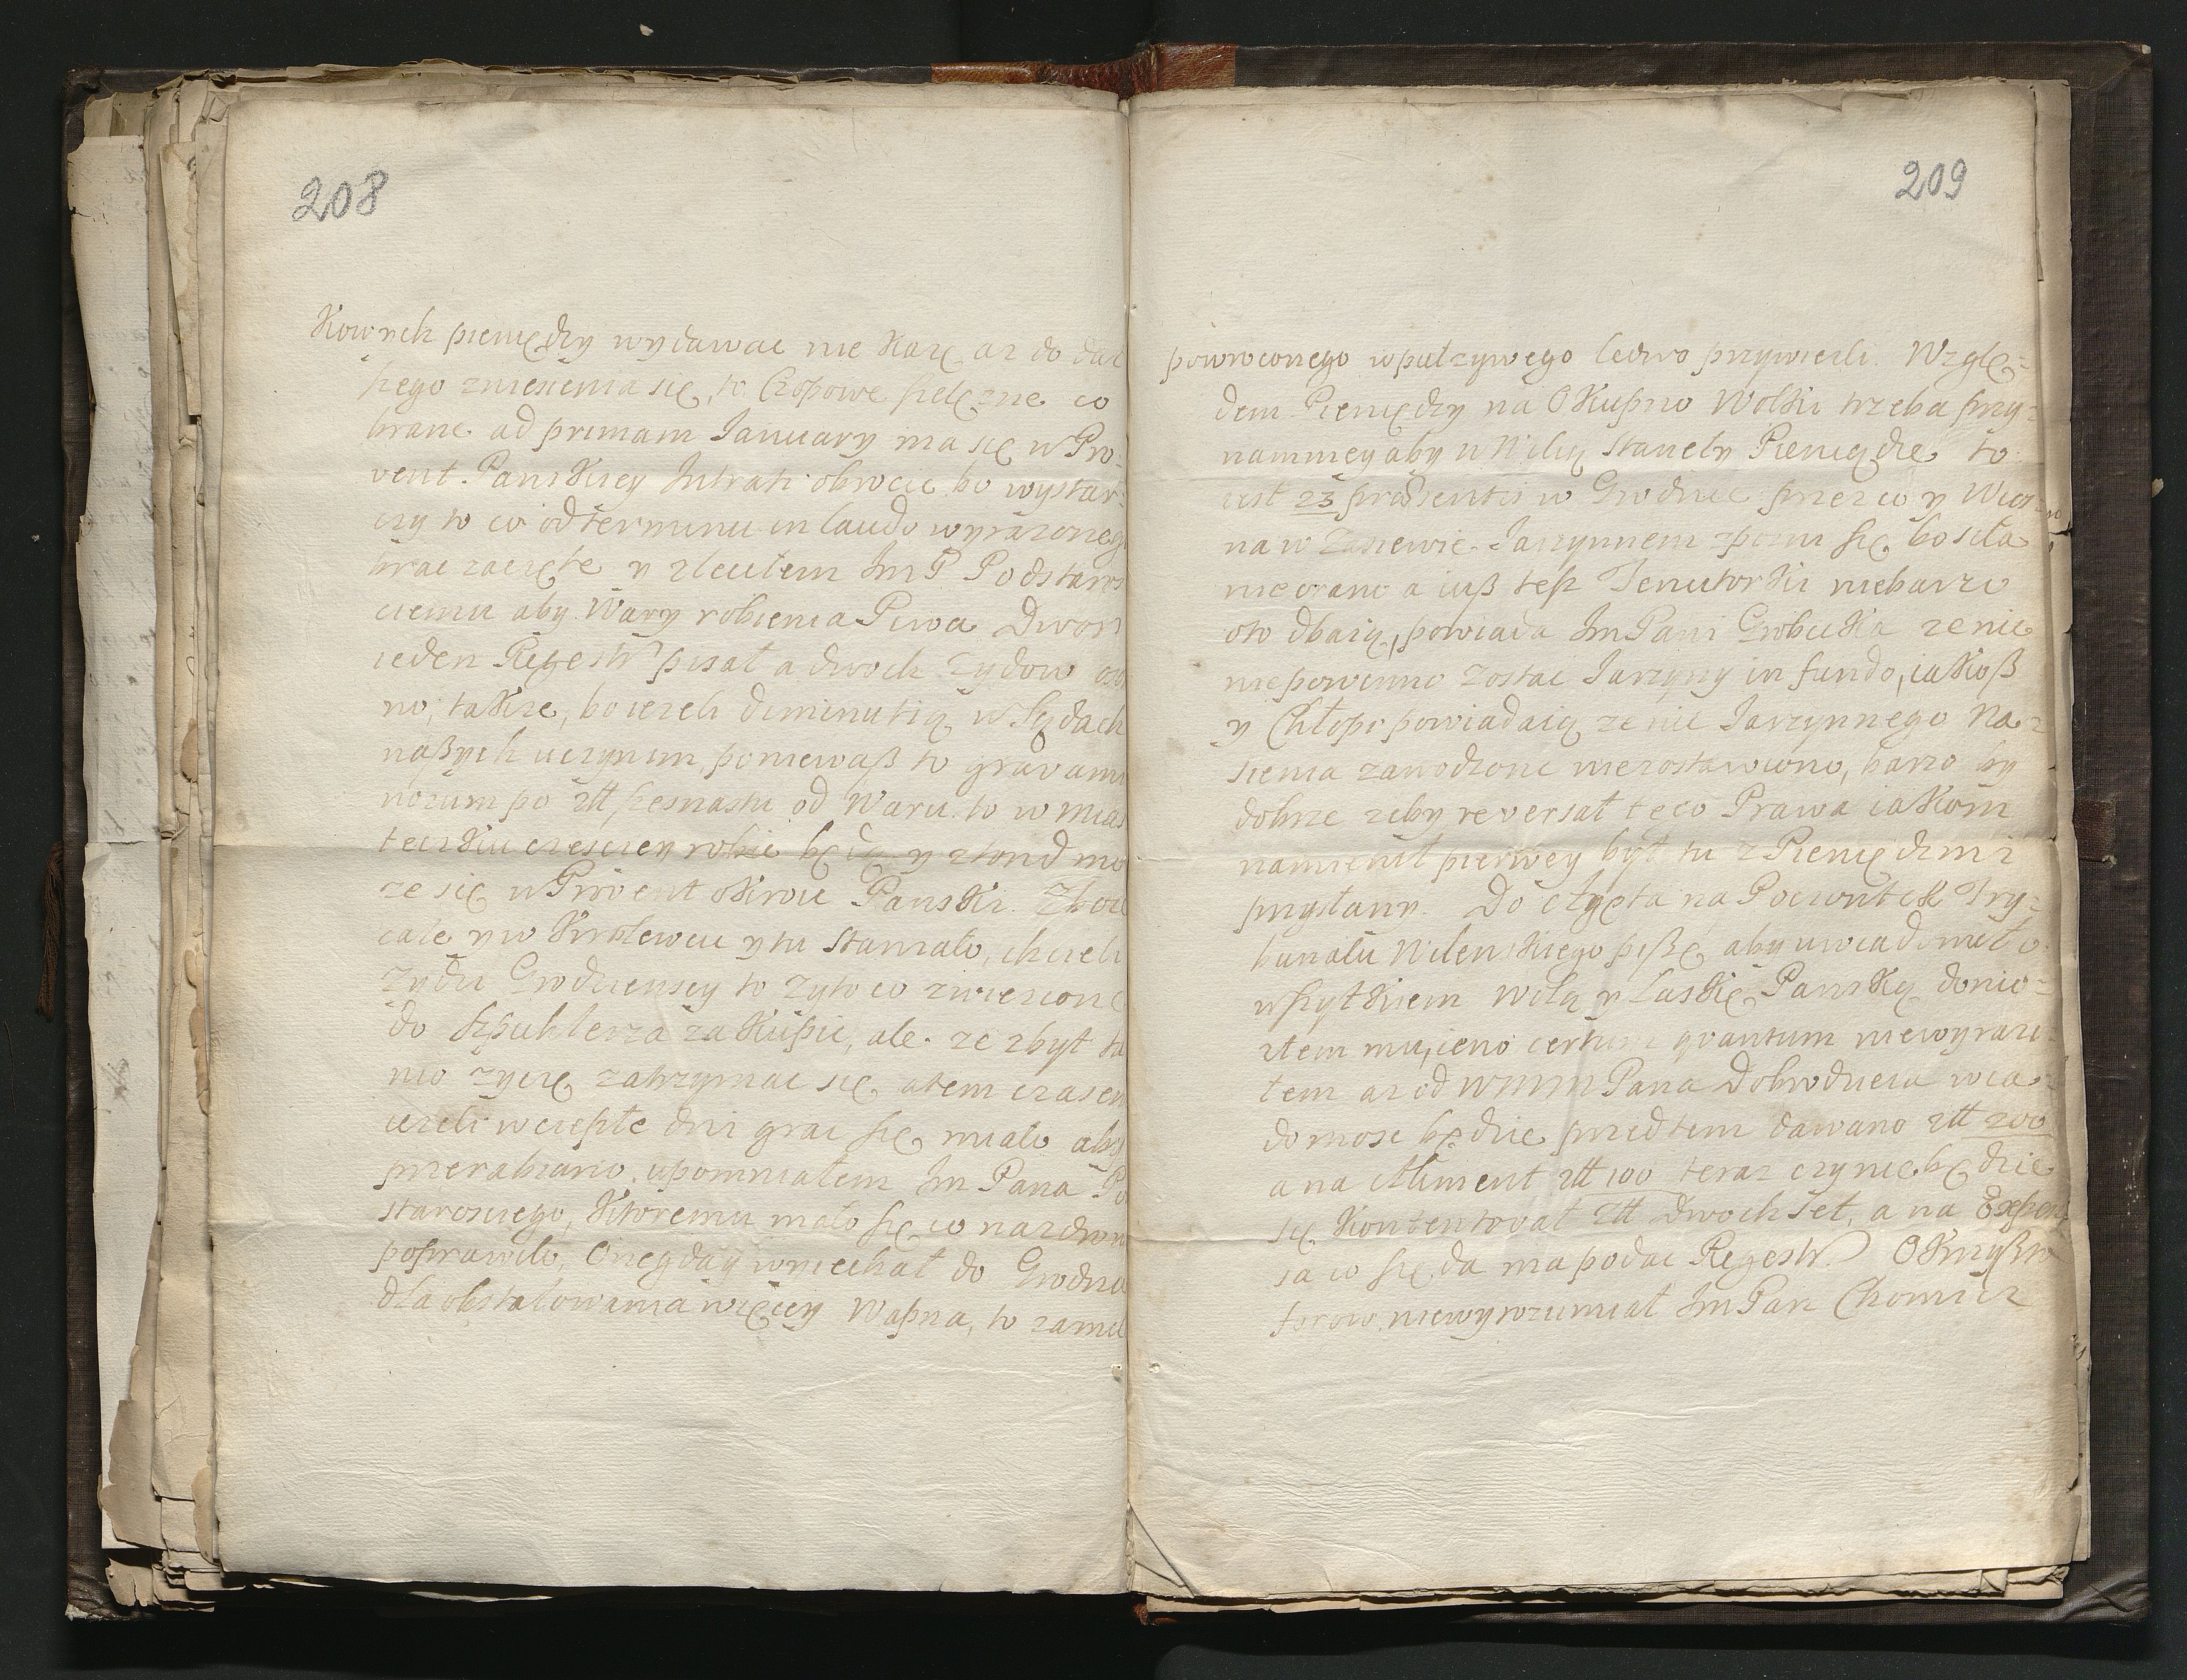 208
Kownch pieniędzy wydawac nie Każę az do dal
szego zniesienia się, to Czopowe szelęzne co
brane ad primam January ma się w Pro-
vent Panskiey Intrati obrocic bo wystar-
czy to co od terminu in laudo wyrazoneg
brac zaczęte y zlecilem Im P Podstaros
ciemu aby Wary robienia Piwa Dwor
ieden Regestr pisał a dwoch Zydow oso
no, takze, bo iezeli diminutią w Sądach
naßych uczynim, poniewaß to gravami
nozum po złł szesnastu od Waru to w mias
teczku czesciey robic będą y ztond mo
ze się w Provent okroic Panski. Zboze
cale y w Krolewcu y tu staniało, chcieli
Zydzi Grodzienscy to Zyto co zwiezione
do Szpichlerza zakupic, ale ze zbyt ta
nio zyczę zatrzymac się atem czasem
iezeli w ciepłe dni grac się miało aby
przerabiano upomniałem Im Pana Po
starosciego, Ktoremu mało się co na zdrow
poprawiło, Onegday wyiechał do Grodna
dla obstalowania więcey Wapna, to zamel
209
powroconego wpułzywego ledwo przywiezli. Wzglę-
dem Pieniędzy na Okupno Wolki trzeba przy-
namniey aby w Wilią Stanely Pieniądze to
iest 23 praesentis w Grodnie przez co y Wios-
na w Zasiewie Jarzynnem zpozni się bo siła
nieorano a iuß tesz Tenutorki niebarzo
oto dbaią, powiada Im Pani Grobicka ze nic
niepowinno zostac Jarzyny in fundo, iakoß
y Chłopi powiadaią ze nic Jarzynnego Na-
sienia zawodzone niezostawiono, barzo by
dobrze zeby reversał tego Prawa iakom
namienił pierwey był tu z Pieniędzmi
przysłany. Do na Poczontek Try-
bunału Wilenskiego pißę aby uwiadomił o
wszytkiem Wolą y Laskę Panską donio-
złem mu, ieno certum quantum niewyrazi
łem az od WMM Pana Dobrodzieia wia-
domosc będzie przedtem dawano złł 200
a na Aliment złł 100 teraz czynic będzie
się Kontentował złł Dwoch set, a na Expen
sa co się da ma podac Regestr. Okrzyßto
forow niewyrozumiał Im Pan Chomicz